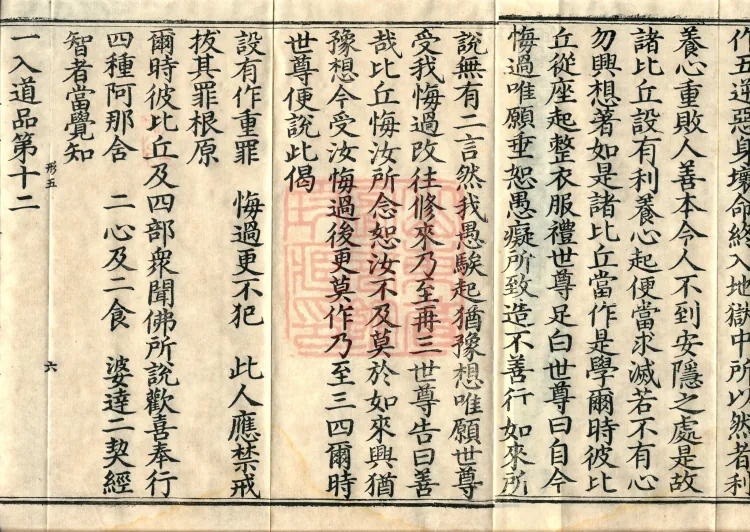 作五逆惡身壞命終入地獄中所以然者利
養心重敗人善本令人不到安隱之處是故
諸比丘設有利養心起便當求滅若不有心
勿興想著如是諸比丘當作是學爾時彼比
丘從座起整衣服禮世尊足白世尊曰自今
悔過唯願垂恕愚癡所致造不善行如來所
說無有二言然我愚騃起猶豫想唯願世尊
受我悔過改往修來乃至再三世尊告曰善
哉比丘悔汝所念恕汝不及莫於如來興猶
豫想今受汝悔過後更莫作乃至三四爾時
世尊便說此偈
設有作重罪　悔過更不犯　此人應禁戒
拔其罪根原
爾時彼比丘及四部衆聞佛所說歡喜奉行
四種阿那舍　二心及二食　婆達二契經
智者當覺知
形五　六
一入道品第十二